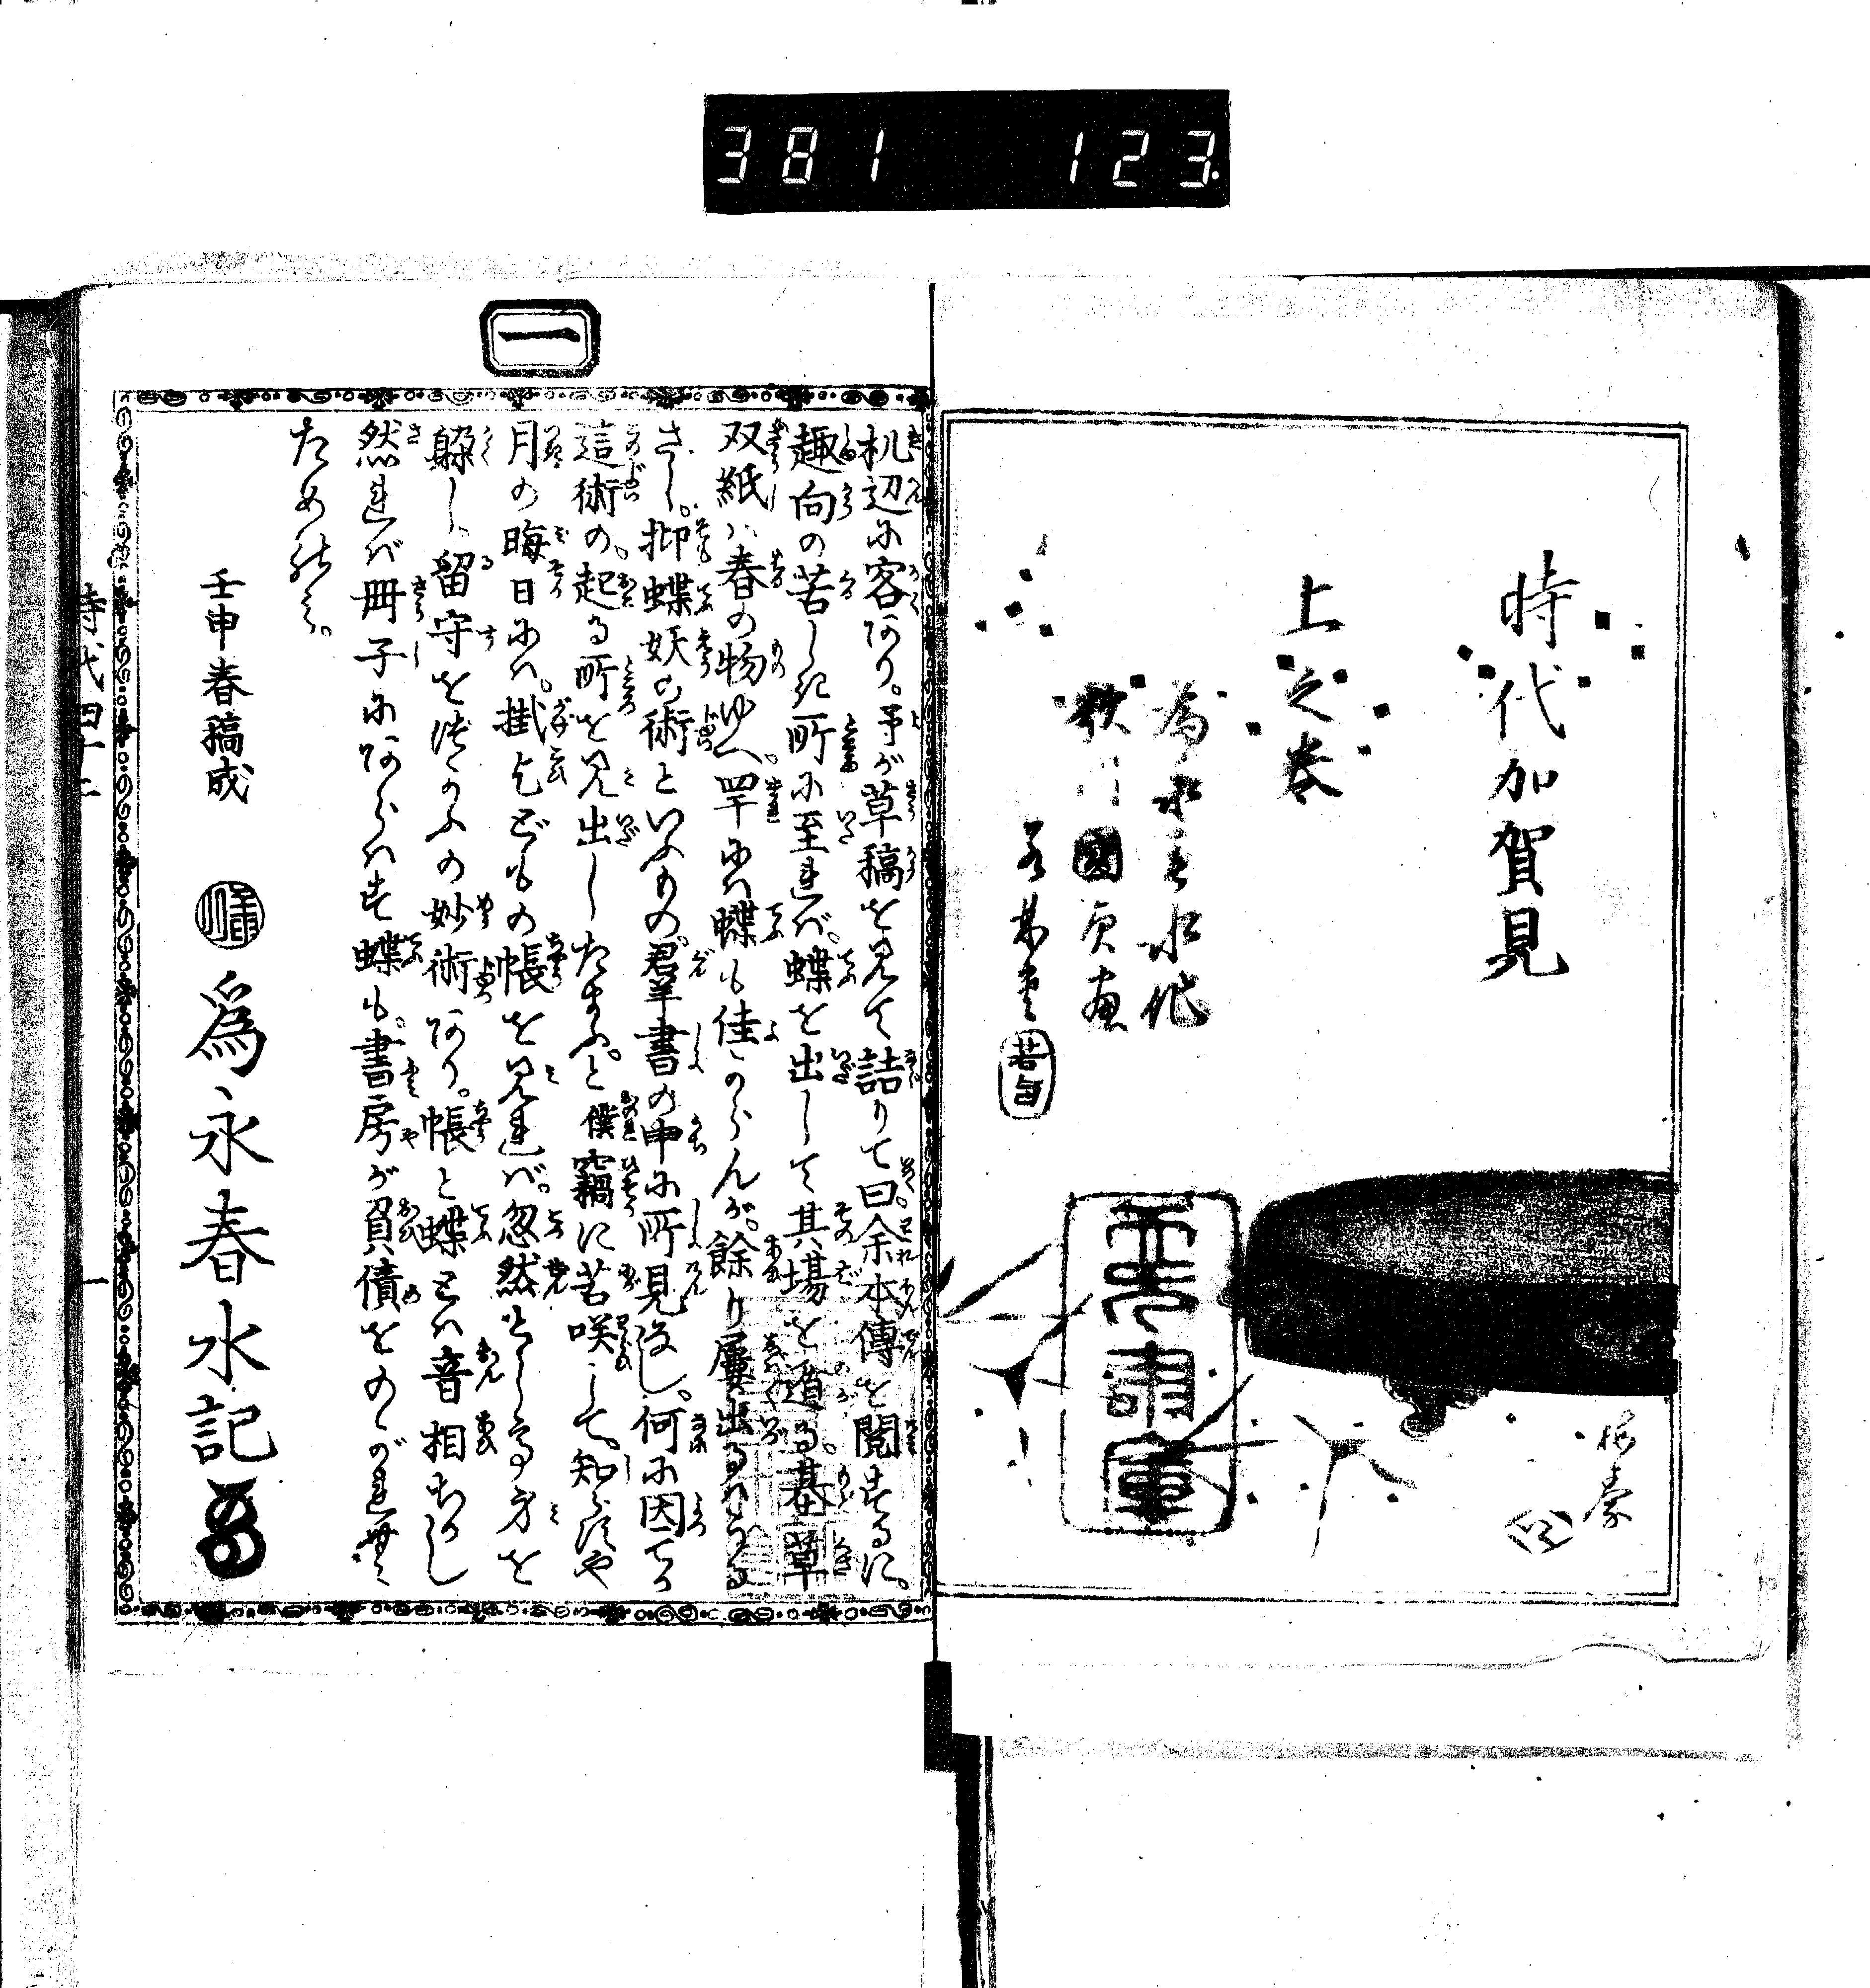 381 123
時代加賀見
上之巻
為永春水作
歌川國貞画
若林堂
若自
一
机辺に客あり。予が草稿を見て詰りて曰。余本傳を閲するに。
趣向の苦しき所に至れば。蝶を出して其場を遁る。甚草
双紙は春の物ゆへ。四季には蝶も佳からんが。餘り屡出るはうる
さし。抑蝶妖の術といふもの。群書の中に所見なし。何に因てか
這術の。起る所を見出したまふ。と僕竊に苦咲して。知ずや
月の晦日には。掛乞どもの帳を見れば。忽然として身を
躱し。留守をつかふの妙術あり。帳と蝶とは音相おなし
然れば冊子にあらはす蝶も。書房が負債をのがれむ
ためならん。
壬申春稿成
為永春水記
時代四十二
一